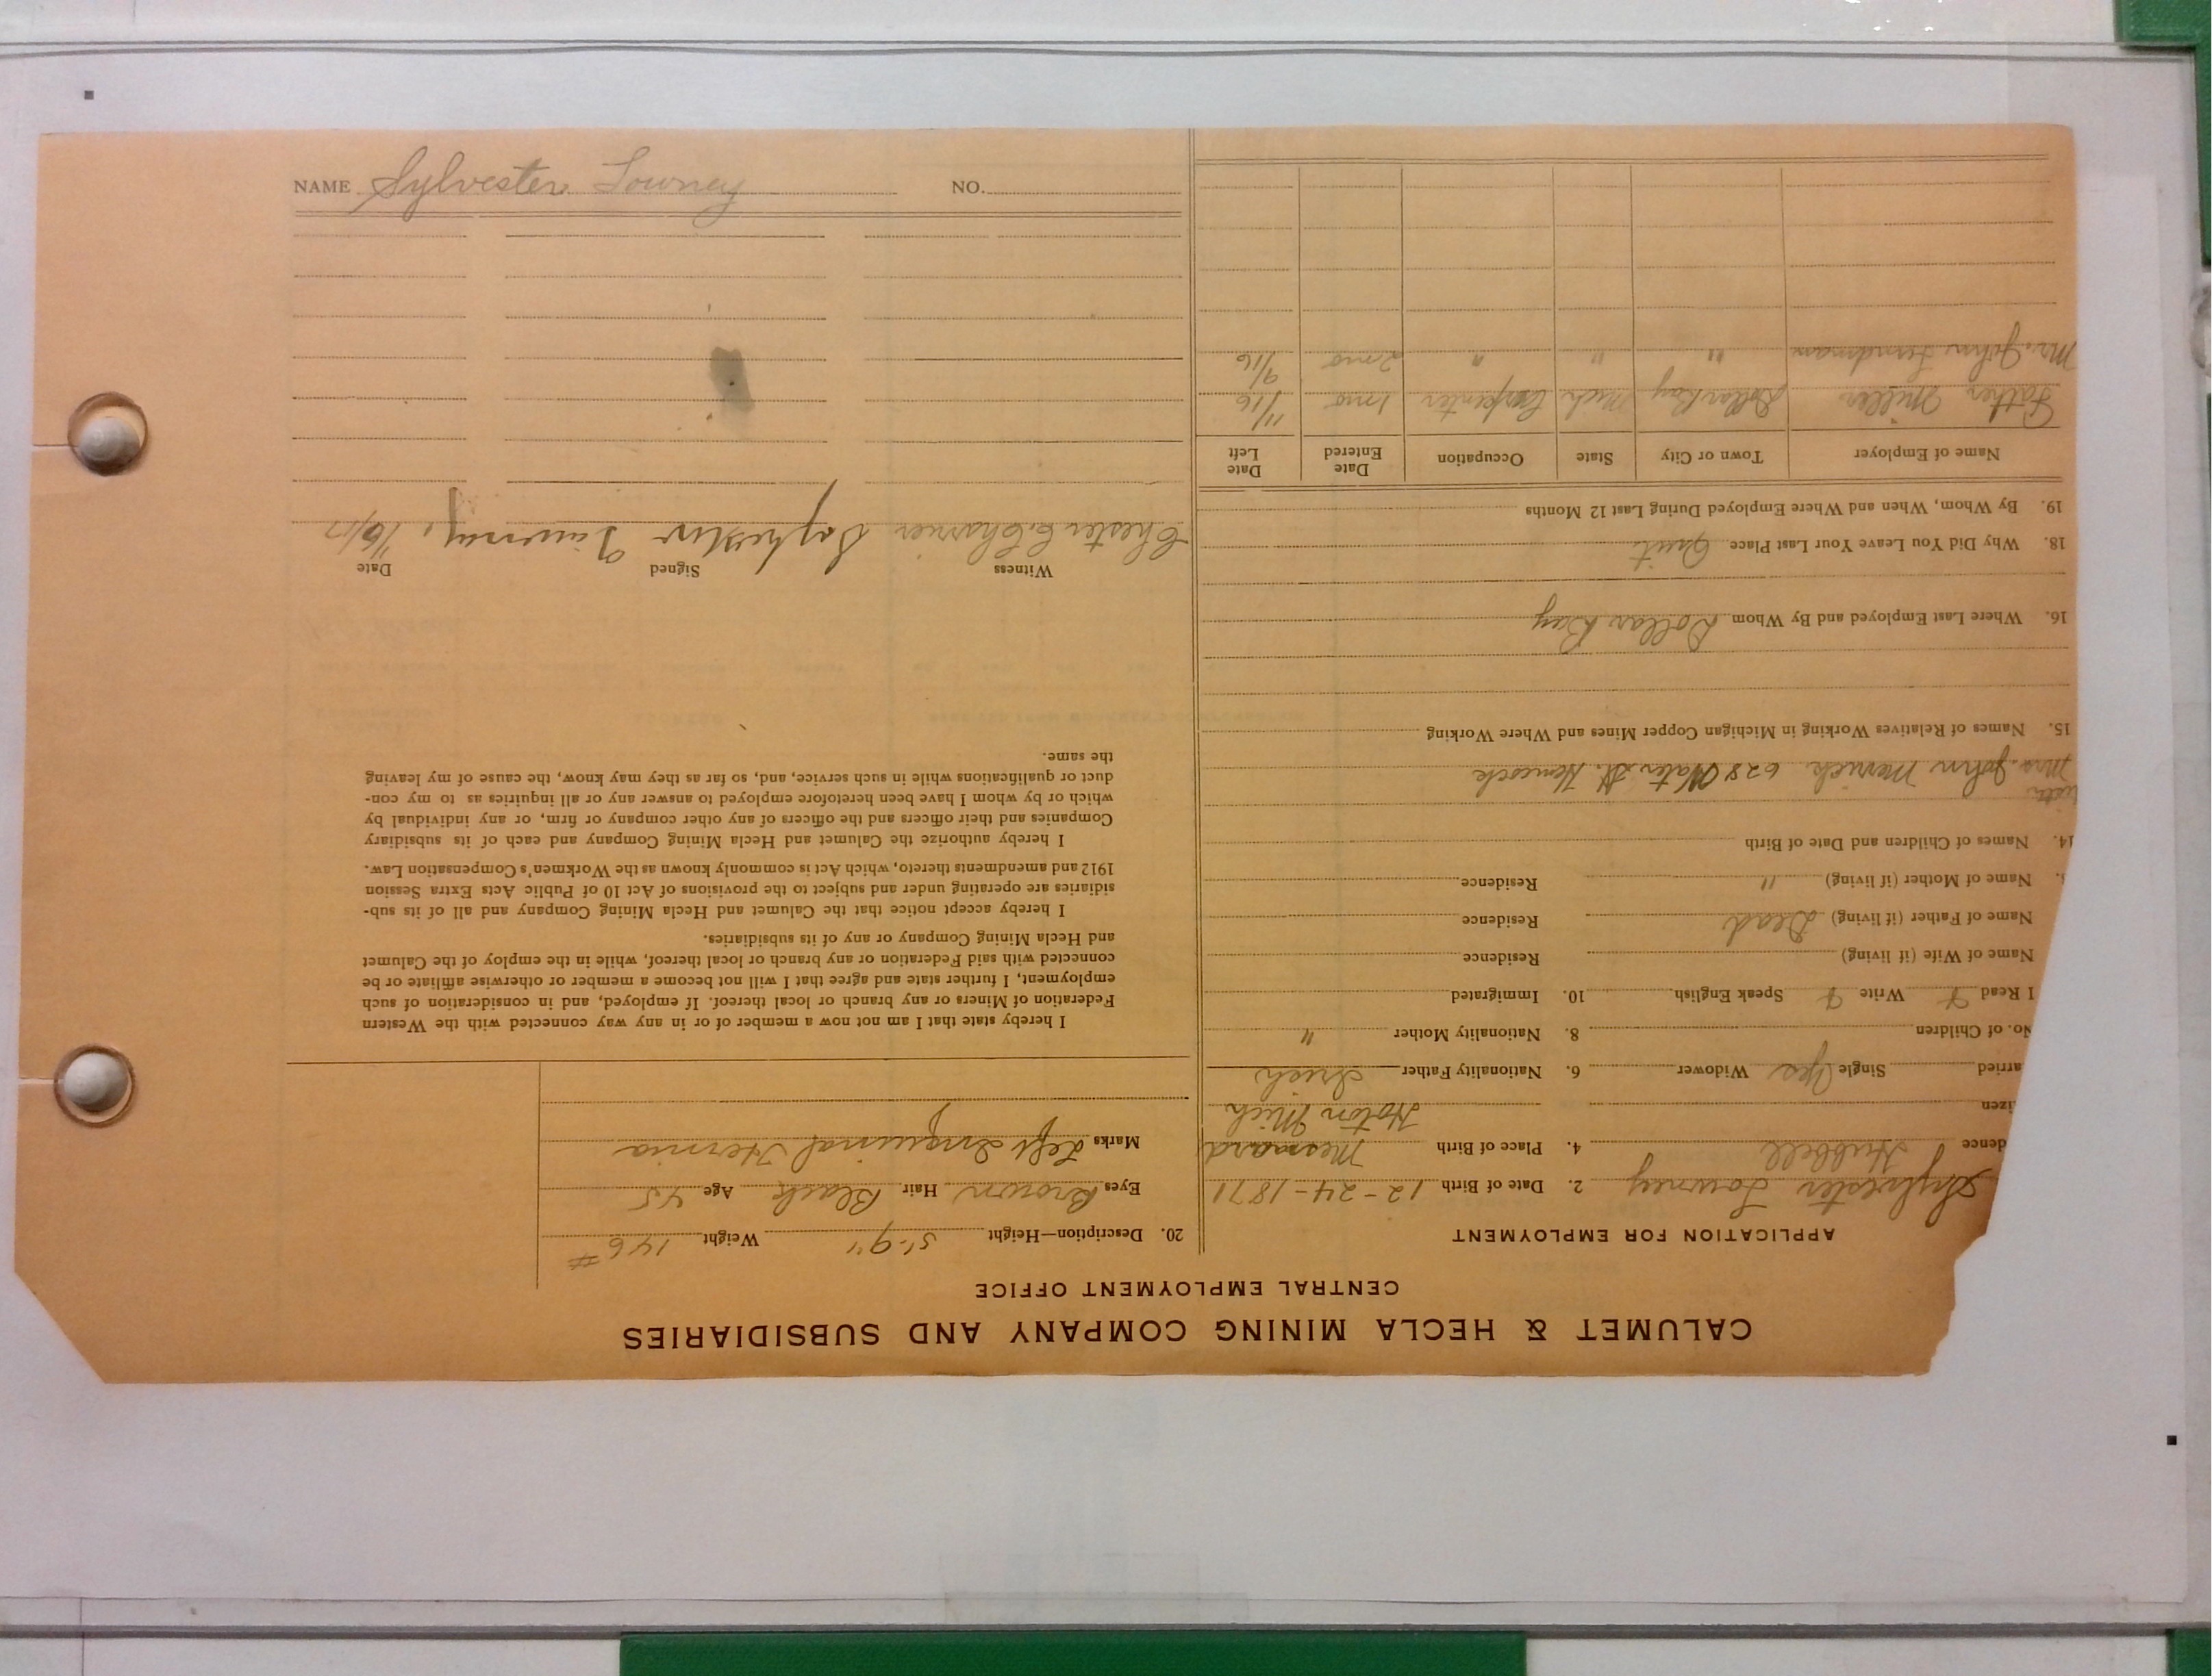 CALUMET & HECLA MINING COMPANY AND SUBSIDIARIES
CENTRAL EMPLOYMENT OFFICE
APPLICATION FOR EMPLOYMENT
Sylvester Lowney 2. Date of Birth 12-24-1871
dence Hubbell 4. Place of Birth Mesnard
izen Hoton Mich
arried Single Yes Widower 6. Nationality Father Irish
No. of Children 8. Nationality Mother "
I Read Write Speak English 10. Immigrated
Name of Wife (if living) Residence
Name of Father (if living) Dead Residence
Name of Mother (if living) " Residence
14. Names of Children and Date of Birth
Mrs. John 628 Water St. Hancock
15. Names of Relatives Working in Michigan Copper Mines and Where Working
16. Where Last Employed and By Whom Dollar Bay
18. Why Did You Leave Your Last Place. Quit
19. By Whom, When and Where Employed During Last 12 Months
Name of Employer Town or City State Occupation Date Entered Date Left
Father Miller Dollar Bay Mich Carpenter 1 mo 11/16
Mr. John " " " 2 mo 9/16
20. Description—Height 5'-9" Weight 146#
Eyes Brown Hair Black Age 45
Marks Left Inguinal Hernia
I hereby state that I am not now a member of or in any way connected with the Western
Federation of Miners or any branch or local thereof. If employed, and in consideration of such
employment, I further state and agree that I will not become a member or otherwise affiliate or be
connected with said Federation or any branch or local thereof, while in the employ of the Calumet
and Hecla Mining Company or any of its subsidiaries.
I hereby accept notice that the Calumet and Hecla Mining Company and all of its sub-
sidiaries are operating under and subject to the provisions of Act 10 of Public Acts Extra Session
1912 and amendments thereto, which Act is commonly known as the Workmen's Compensation Law.
I hereby authorize the Calumet and Hecla Mining Company and each of its subsidiary
Companies and their officers and the officers of any other company or firm, or any individual by
which or by whom I have been heretofore employed to answer any or all inquiries as to my con-
duct or qualifications while in such service, and, so far as they may know, the cause of my leaving
the same.
Witness Signed Date
Chester E. 1/6/17
NAME Sylvester Lowney NO.